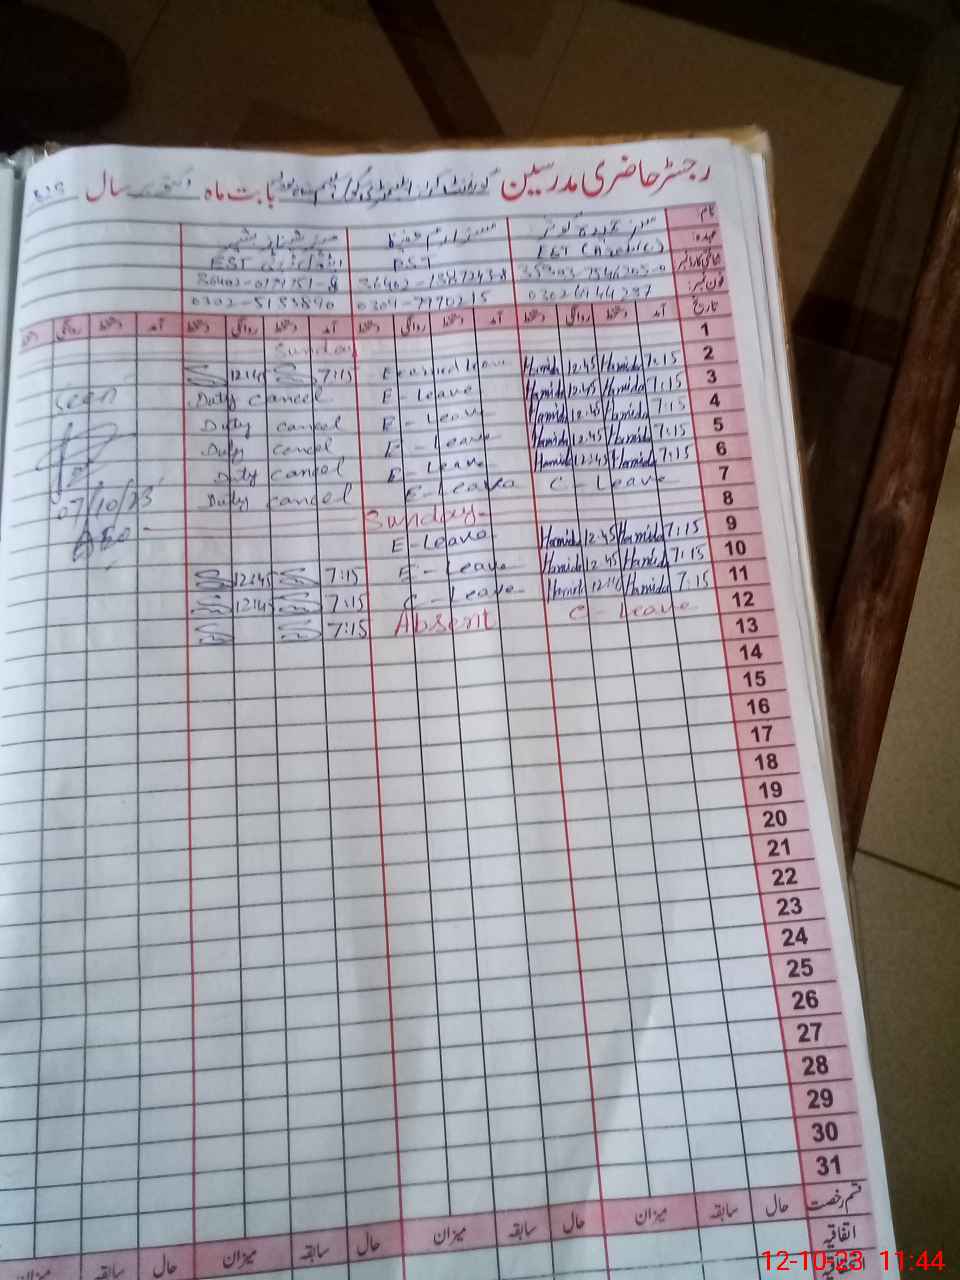 رجسٹر حاضری مدرسین گورنمنٹ گرلز بابت ماہ اکتوبر سال
نام
عہدہ: EST (Arabic) PST EST
شناختی کارڈ نمبر
فون نمبر: 03026144287 0304-7970215 0302-5153840
تاریخ آمد دستخط روانگی دستخط آمد دستخط روانگی دستخط آمد دستخط روانگی دستخط آمد دستخط روانگی دستخط
1 Sunday
2 7:15 Hamida 12:45 Hamida Earned leave 7:15 12:45
3 7:15 Hamida 12:45 Hamida E - Leave Duty cancel
4 7:15 Hamida 12:45 Hamida E - Leave Duty cancel
5 7:15 Hamida 12:45 Hamida E - Leave Duty cancel
6 7:15 Hamida 12:45 Hamida E - Leave Duty cancel
7 C - Leave E - Leave Duty cancel
8 Sunday
9 7:15 Hamida 12:45 Hamida E - Leave
10 7:15 Hamida 12:45 Hamida E - Leave 7:15 12:45
11 7:15 Hamida Hamida C - Leave 7:15 12:45
12 C - Leave Absent 7:15
13
14
15
16
17
18
19
20
21
22
23
24
25
26
27
28
29
30
31
Seen
07/10/23
AEO
قسم رخصت حال سابقہ میزان حال سابقہ میزان حال سابقہ میزان حال
اتفاقیہ
12-10-23 11:44